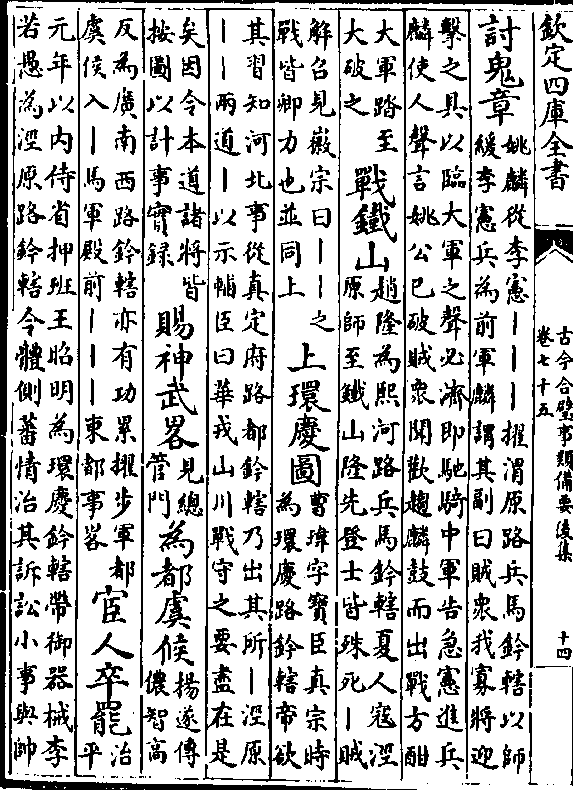 欽定四庫全書
古今合璧事類備要後集
卷七十五
十四
討鬼章
姚麟從李憲丨丨丨擢渭原路兵馬鈐轄以師
緩李憲兵為前軍麟謂其副曰賊衆我寡將迎
擊之具以臨大軍之聲必濟即馳騎中軍告急憲進兵
麟使人聲言姚公已破賊衆聞歡趨麟鼓而出戰方酣
大軍踏至
大破之
戰鐵山
趙隆為熙河路兵馬鈐轄夏人寇涇
原師至鐵山隆先登士皆殊死丨賊
解召見徽宗曰丨丨之
戰皆卿力也並同上
上環慶圖
曹瑋字寶臣真宗時
為環慶路鈐轄帝欲
其習知河北事從真定府路都鈐轄乃出其所丨涇原
丨丨兩道丨以示輔臣曰華戎山川戰守之要盡在是
矣因令本道諸將皆
按圖以計事實録
賜神武畧
見總
管門
為都虞候
楊遂傳
儂智高
反為廣南西路鈐轄亦有功累擢步軍都
虞侯入丨馬軍殿前丨丨丨東都事畧
宦人卒罷
治
平
元年以内侍省押班王昭明為環慶鈐轄帶御器械李
若愚為涇原路鈐轄令體側蕃情治其訴訟小事與帥